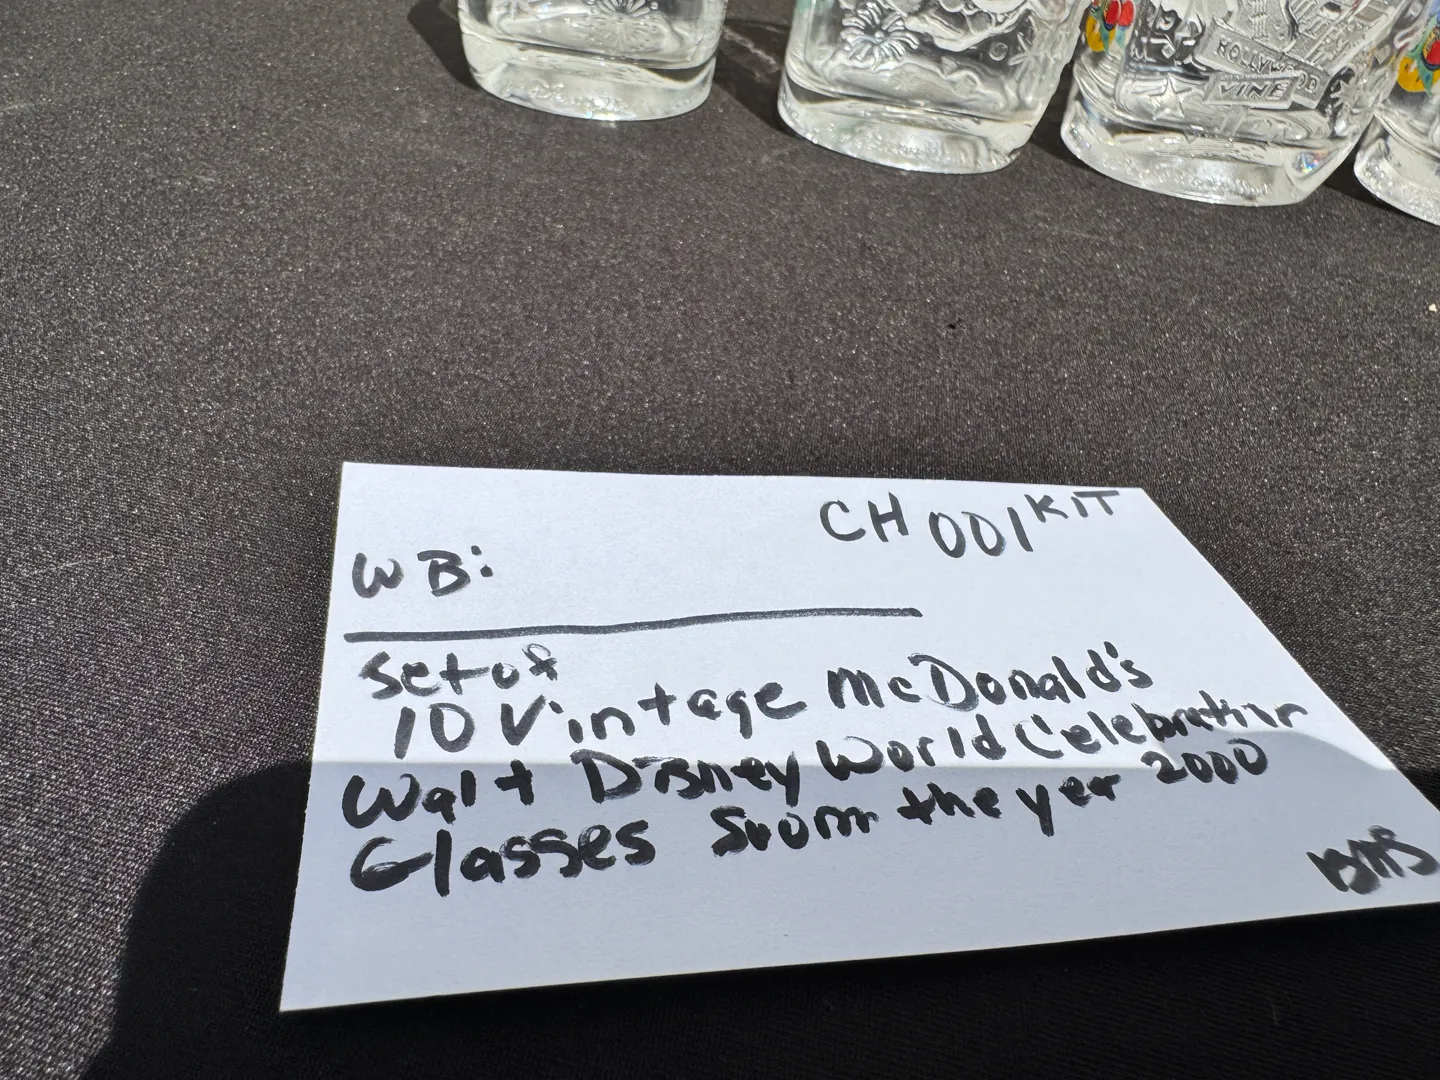 HOLLYWOOD
VINE
CH001KIT
WB:
Set of
10 Vintage McDonald's
Walt Disney World Celebration
Glasses from the year 2000